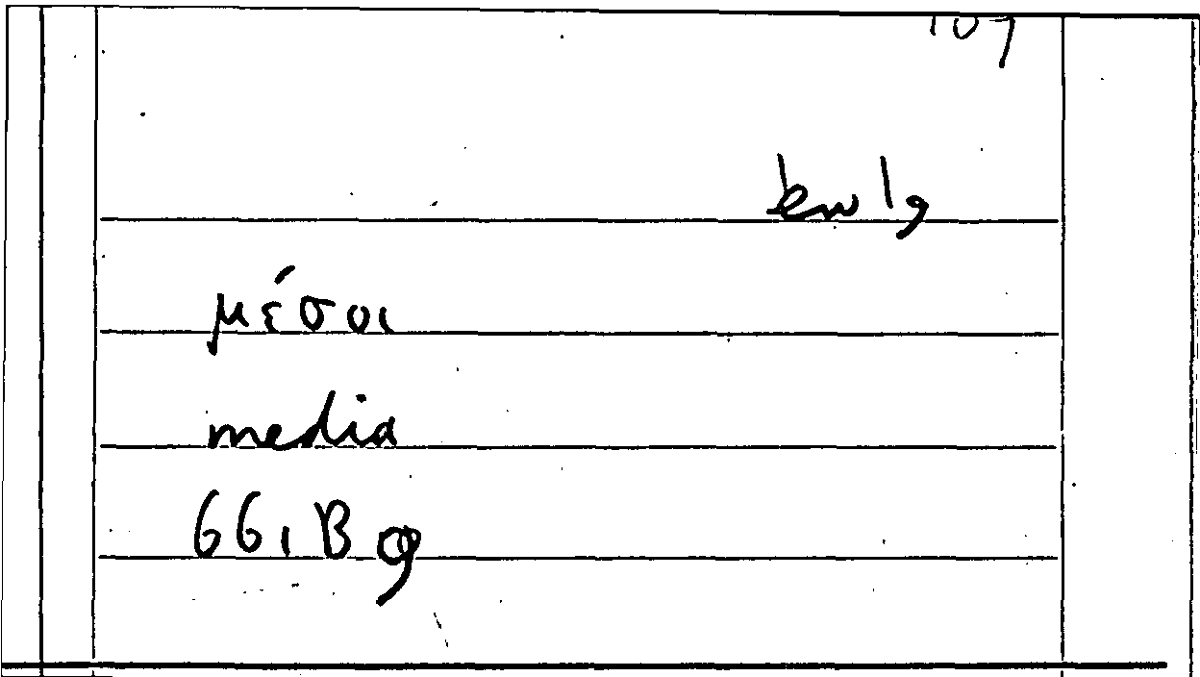 107
μέσοι
media
661 B 9